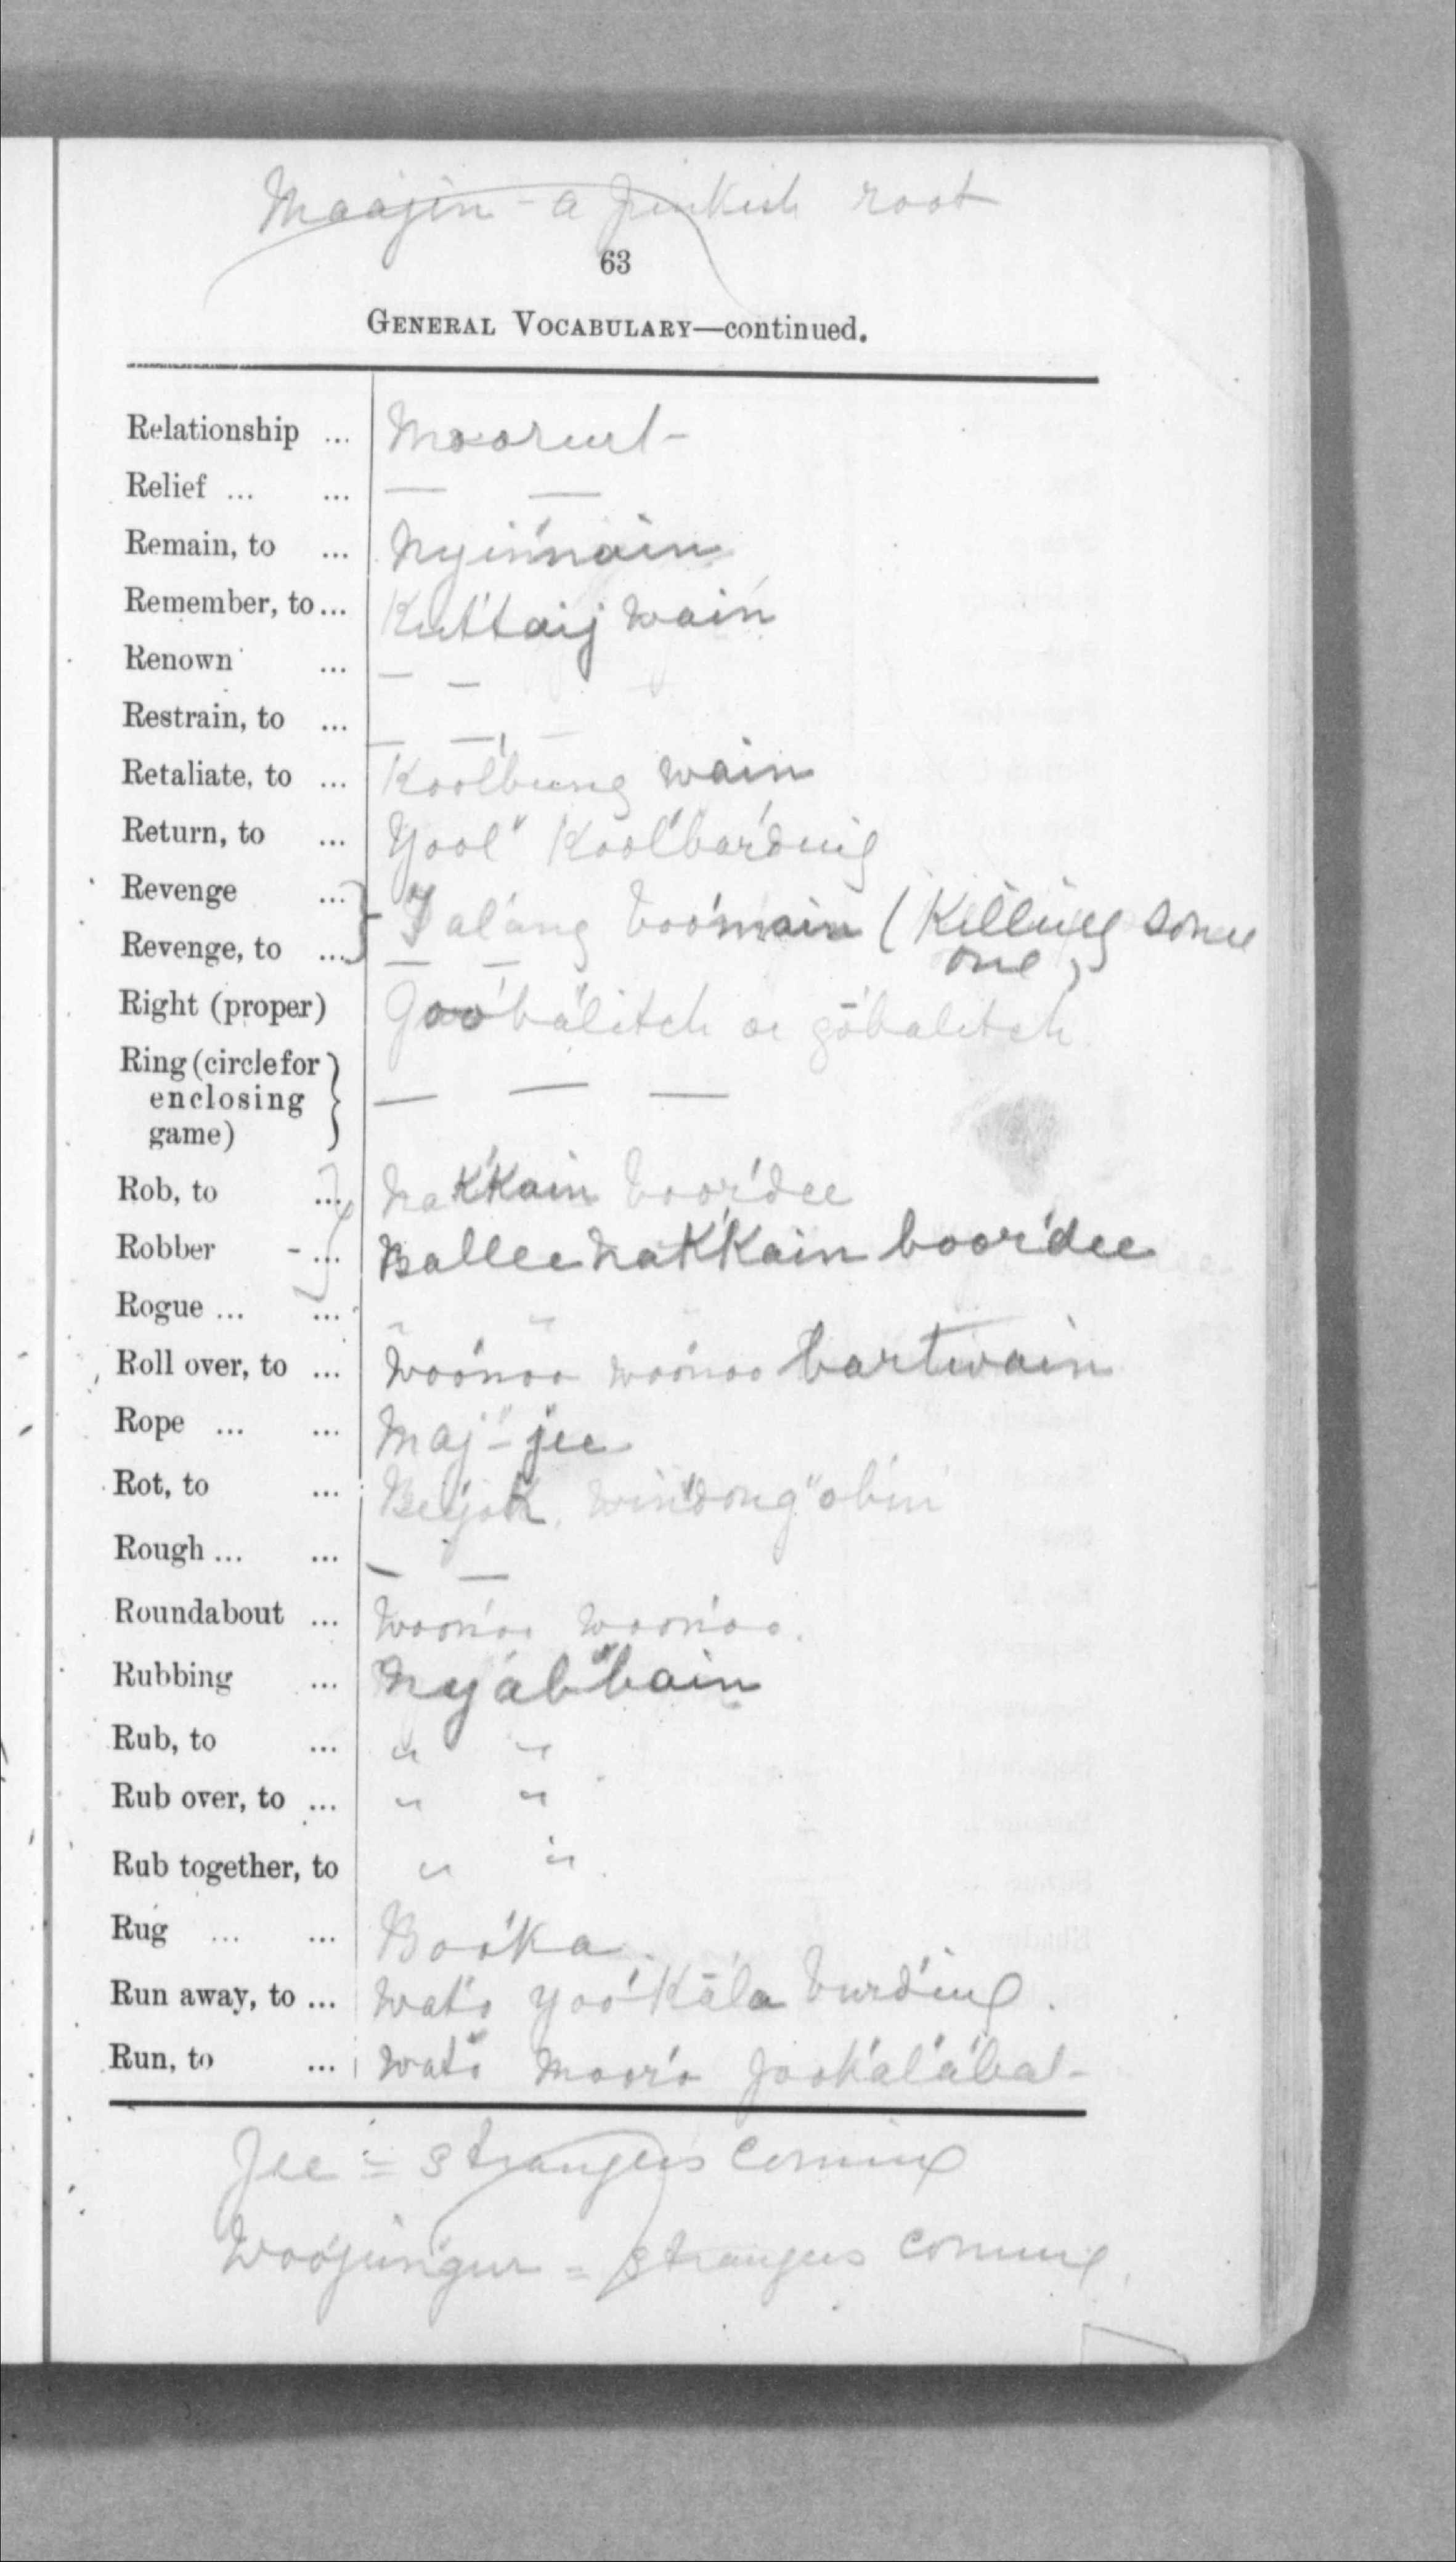 Maajin - a pinkish root
63
GENERAL VOCABULARY—continued.
Relationship ... Moorurt -
Relief ... ... — —
Remain, to ... Nyin'nain
Remember, to ... Kut'taij wain
Renown ... — —
Restrain, to ... — — —
Retaliate, to ... Kool'bung wain
Return, to ... Yool' Kool'bar'ding
Revenge ... } Jal'ang boo'main (Killing some
Revenge, to ... } — — one)
Right (proper) Goo'balitch or gōbalitch
Ring (circle for }
enclosing } — — —
game) }
Rob, to ... Nak'kain boor'dee
Robber - ... Ballee nak'kain boor'dee
Rogue ... ... " "
Roll over, to ... Woo'noo woo'noo bartwain
Rope ... ... Maj'-jee
Rot, to ... Beejak, win'dong"abin
Rough ... ... — —
Roundabout ... Woon'oo woon'oo.
Rubbing ... Nyab'bain
Rub, to ... " "
Rub over, to ... " "
Rub together, to " "
Rug ... ... Boo'ka.
Run away, to ... Wat'o yoo'kāla burd'ing.
Run, to ... Wat'o moor'o jook'al'a'bat -
Jee = strangers coming
Woojungur = strangers coming.